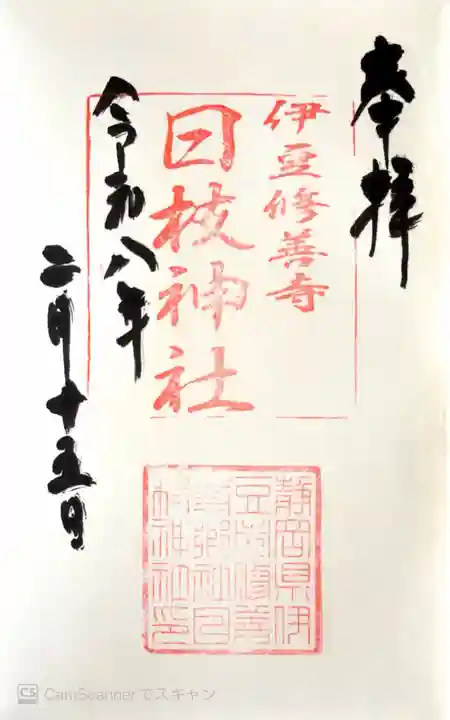 奉拝
伊豆修善寺
日枝神社
令和八年
二月十五日
静岡県伊
豆市修善
寺鄕社日
枝神社印
CS CamScannerでスキャン